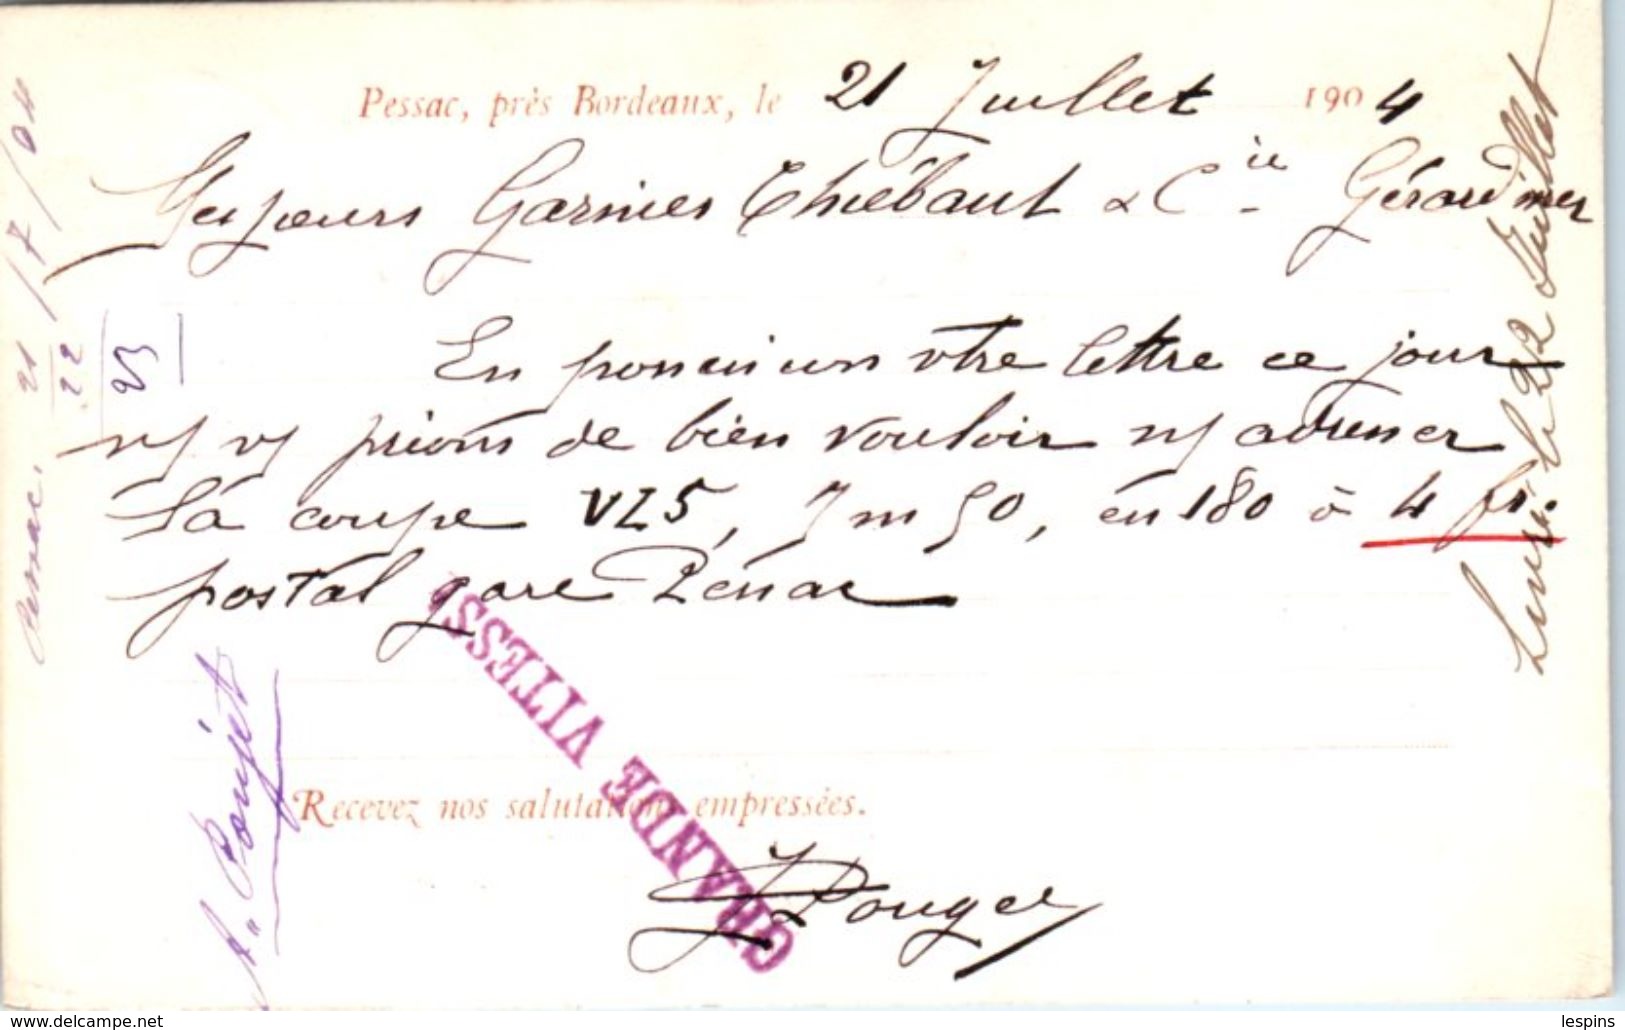 Pessac, près Bordeaux, le 21 Juillet 1904
Messieurs Garnier Thiébaut & Cie Gérardmer
En possession vtre lettre ce jour
ns vs prions de bien vouloir ns adresser
la coupe VZ5, 7m50, en 180 à 4 fr.
postal gare Pessac
GRANDE VITESSE
Recevez nos salutations empressées.
J Pouget
Pessac. 21/7/04
22
23
A. Pouget
le 22 Juillet
www.delcampe.net
lespins